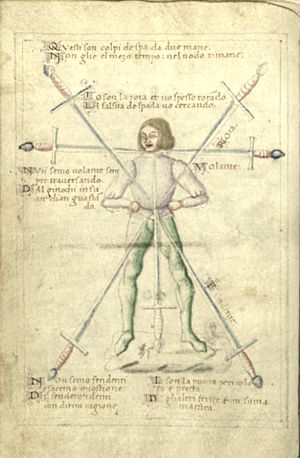 Questi son colpi de spa da due mane.
Non gue el mezo tempo: nel nodo rimane:
Io son la rota et uo spesso rotado
La falsita de spada uo cercando.
Rota.
Volante.
Nui semo uolante sem
pre trauersando.
Dal ginochi in su
an dian guastā
do.
Fendente
Nou semo fendenti
e facemo questione
De fender e denti
con dirita ragione
Io son la punta pericolo
sa e presta
De glialtri ferire sum suma
maestra